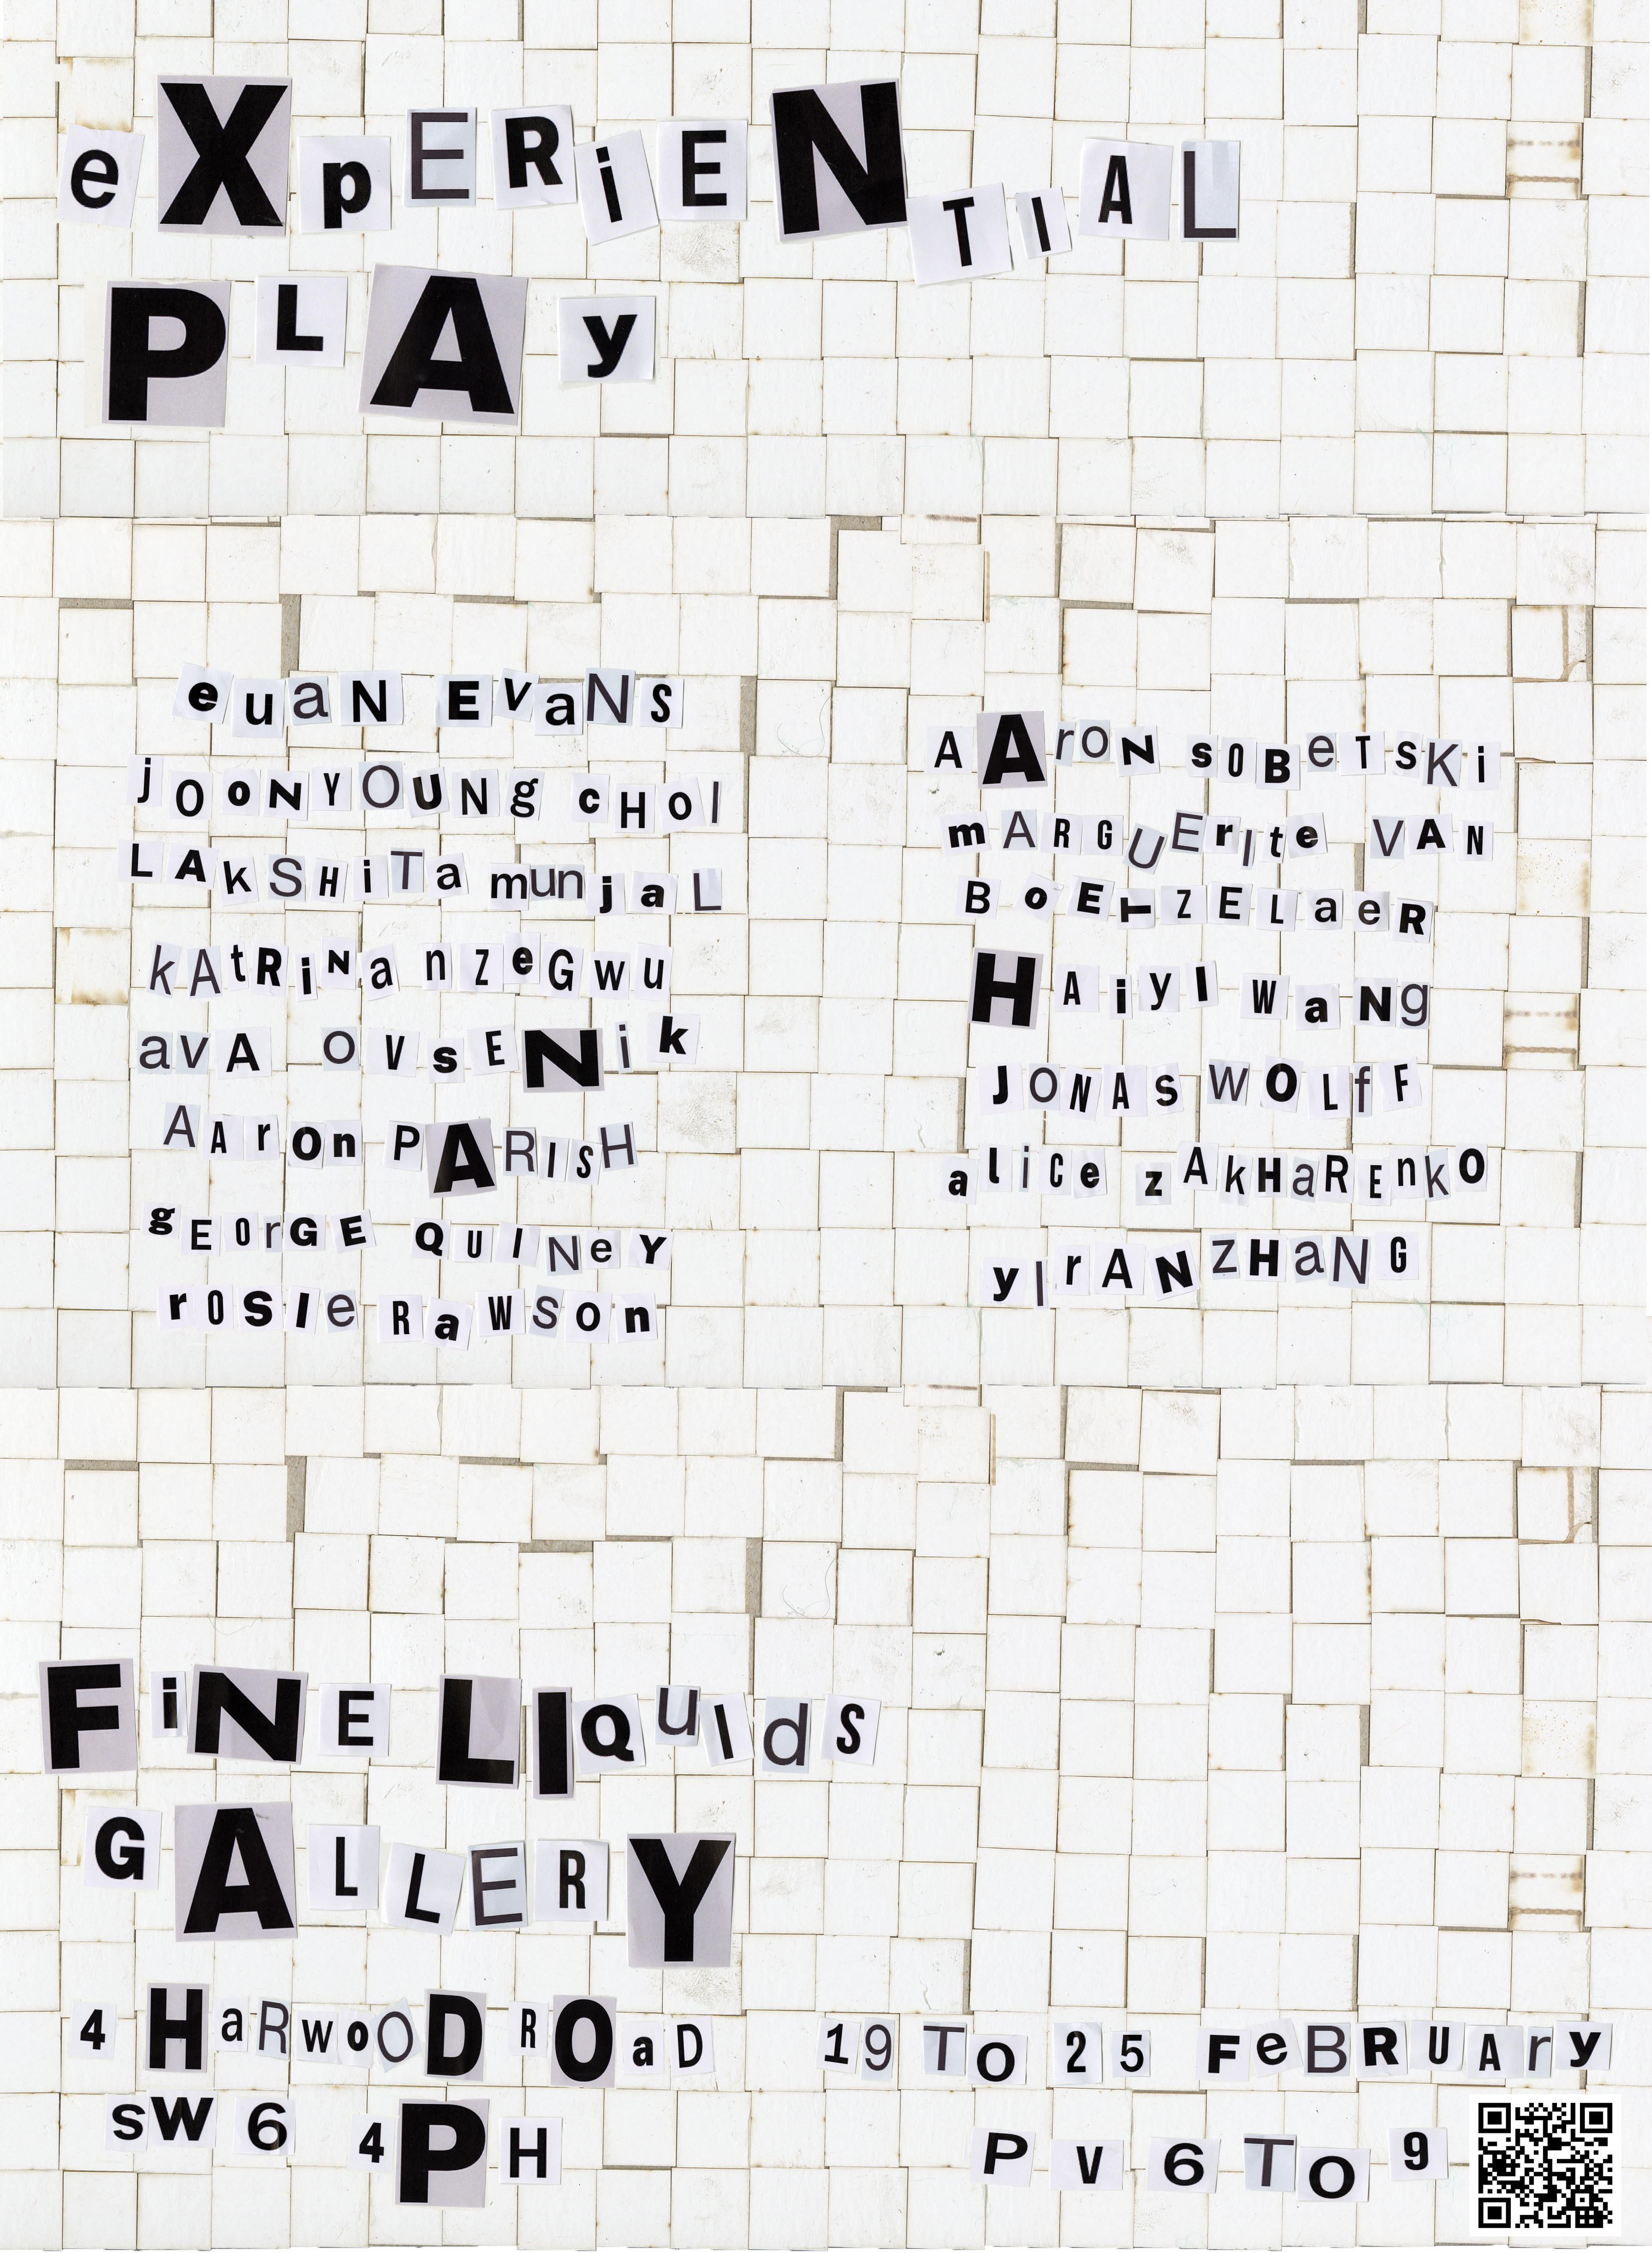 eXpERiENTIAL
PLAy
euaN EVaNS
jOoNYOUNg cHOl
LAkSHiTa munjaL
kAtRiNa nzeGwu
avA OVsENik
AAron PARISH
gEOrGE QUINeY
rOSIe RaWSon
AArON sOBeTSKi
mARGUErIte VAN
BoETZELaeR
HAiyI WaNg
JONAS WOLfF
aliCe zAkHaREnkO
yIrAN zHaNG
FiNE LIQuIdS
GALLERY
4 HaRwoOD ROaD
sW6 4PH
19 To 25 FeBRUAry
PV 6 To 9